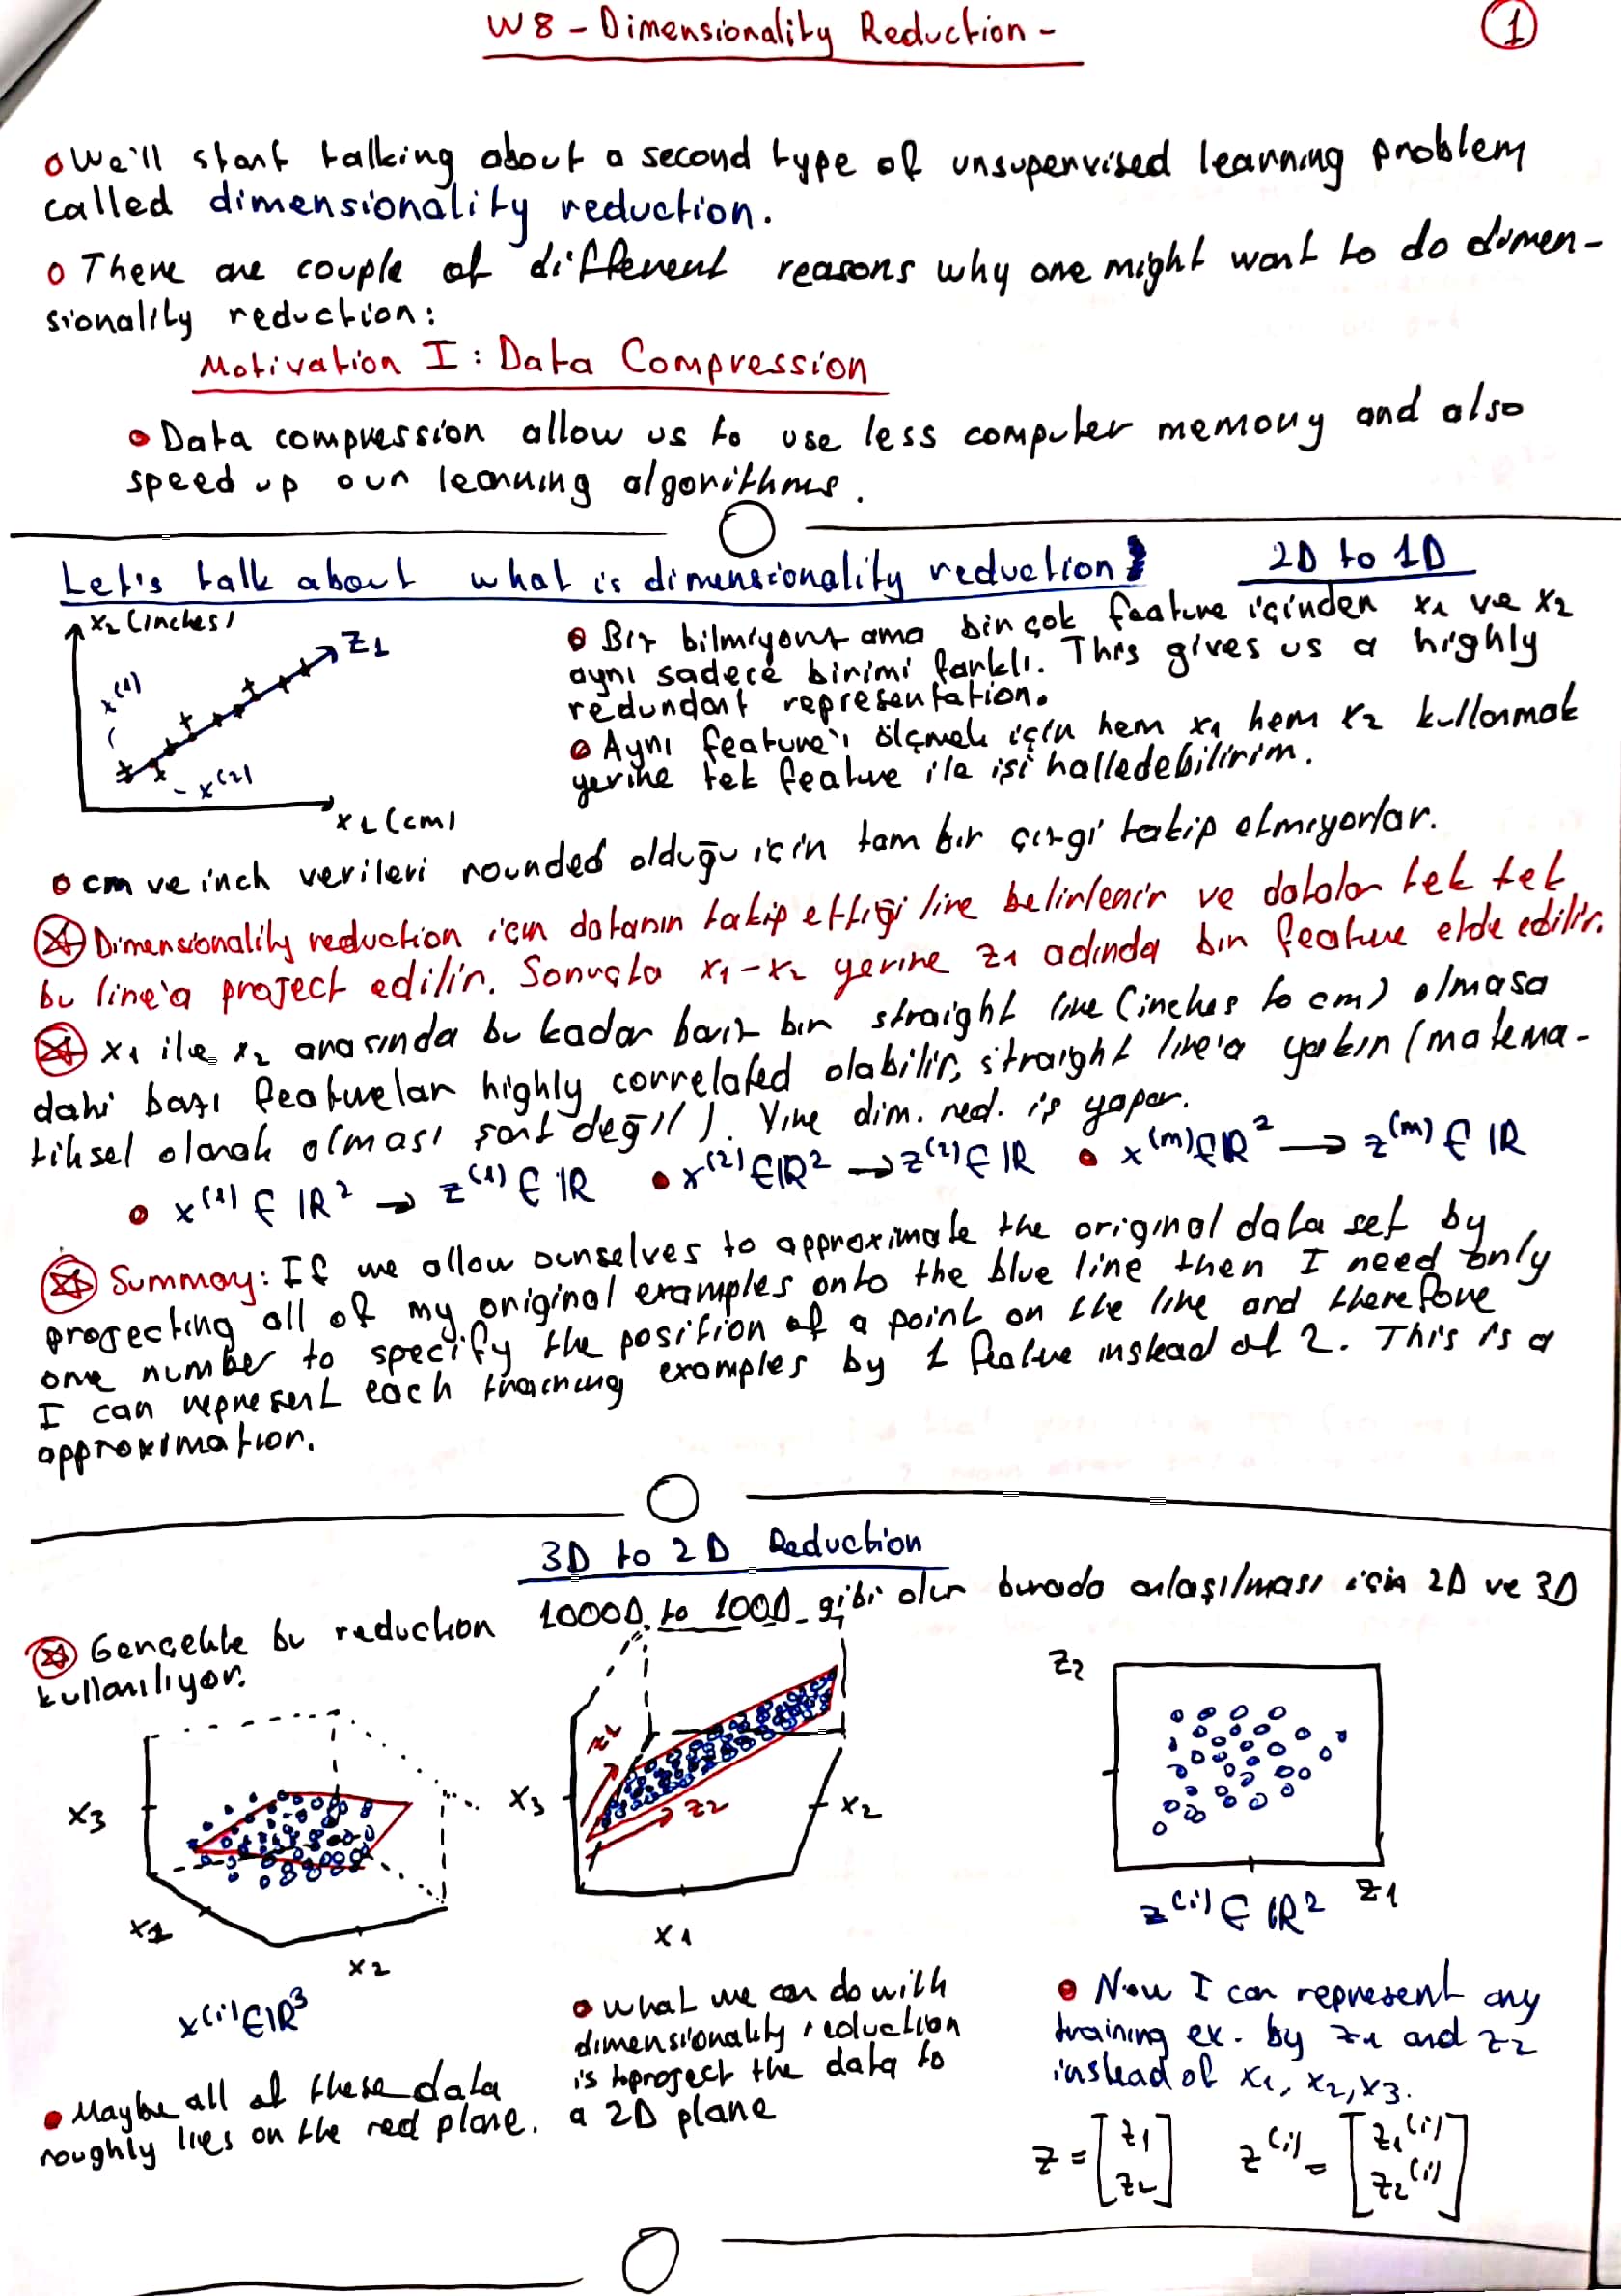 W8 - Dimensionality Reduction -
1
We'll start talking about a second type of unsupervised learning problem
called dimensionality reduction.
There are couple of different reasons why one might want to do dimen-
sionality reduction:
Motivation I : Data Compression
Data compression allow us to use less computer memory and also
speed up our learning algorithms.
Let's talk about what is dimensionality reduction!
2D to 1D
x2 (inches)
z1
x(1)
x(2)
x1 (cm)
Biz bilmiyoruz ama birçok feature içinden x1 ve x2
aynı sadece birimi farklı. This gives us a highly
redundant representation.
Aynı feature'ı ölçmek için hem x1 hem x2 kullanmak
yerine tek feature ile işi halledebilirim.
cm ve inch verileri rounded olduğu için tam bir çizgi takip etmiyorlar.
Dimensionality reduction için datanın takip ettiği line belirlenir ve datalar tek tek
bu line'a project edilir. Sonuçta x1-x2 yerine z1 adında bir feature elde edilir.
x1 ile x2 arasında bu kadar bariz bir straight line (inches to cm) olmasa
dahi bazı featurelar highly correlated olabilir, straight line'a yakın (matema-
tiksel olarak olması şart değil). Yine dim. red. iş yapar.
x(1) ∈ IR2 → z(1) ∈ IR
x(2) ∈ IR2 → z(2) ∈ IR
x(m) ∈ IR2 → z(m) ∈ IR
Summary: If we allow ourselves to approximate the original data set by
projecting all of my original examples onto the blue line then I need only
one number to specify the position of a point on the line and therefore
I can represent each training examples by 1 featue instead of 2. This is a
approximation.
3D to 2D Reduction
Gerçekte bu reduction 1000D to 100D gibi olur burada anlaşılması için 2D ve 3D
kullanılıyor.
x3
x1
x2
x(i) ∈ IR3
x3
z1
z2
x2
x1
z2
z1
z(i) ∈ IR2
Maybe all of these data
roughly lies on the red plane.
What we can do with
dimensionality reduction
is to project the data to
a 2D plane
Now I can represent any
training ex. by z1 and z2
instead of x1, x2, x3.
z = [z1 z2]
z(i) = [z1(i) z2(i)]